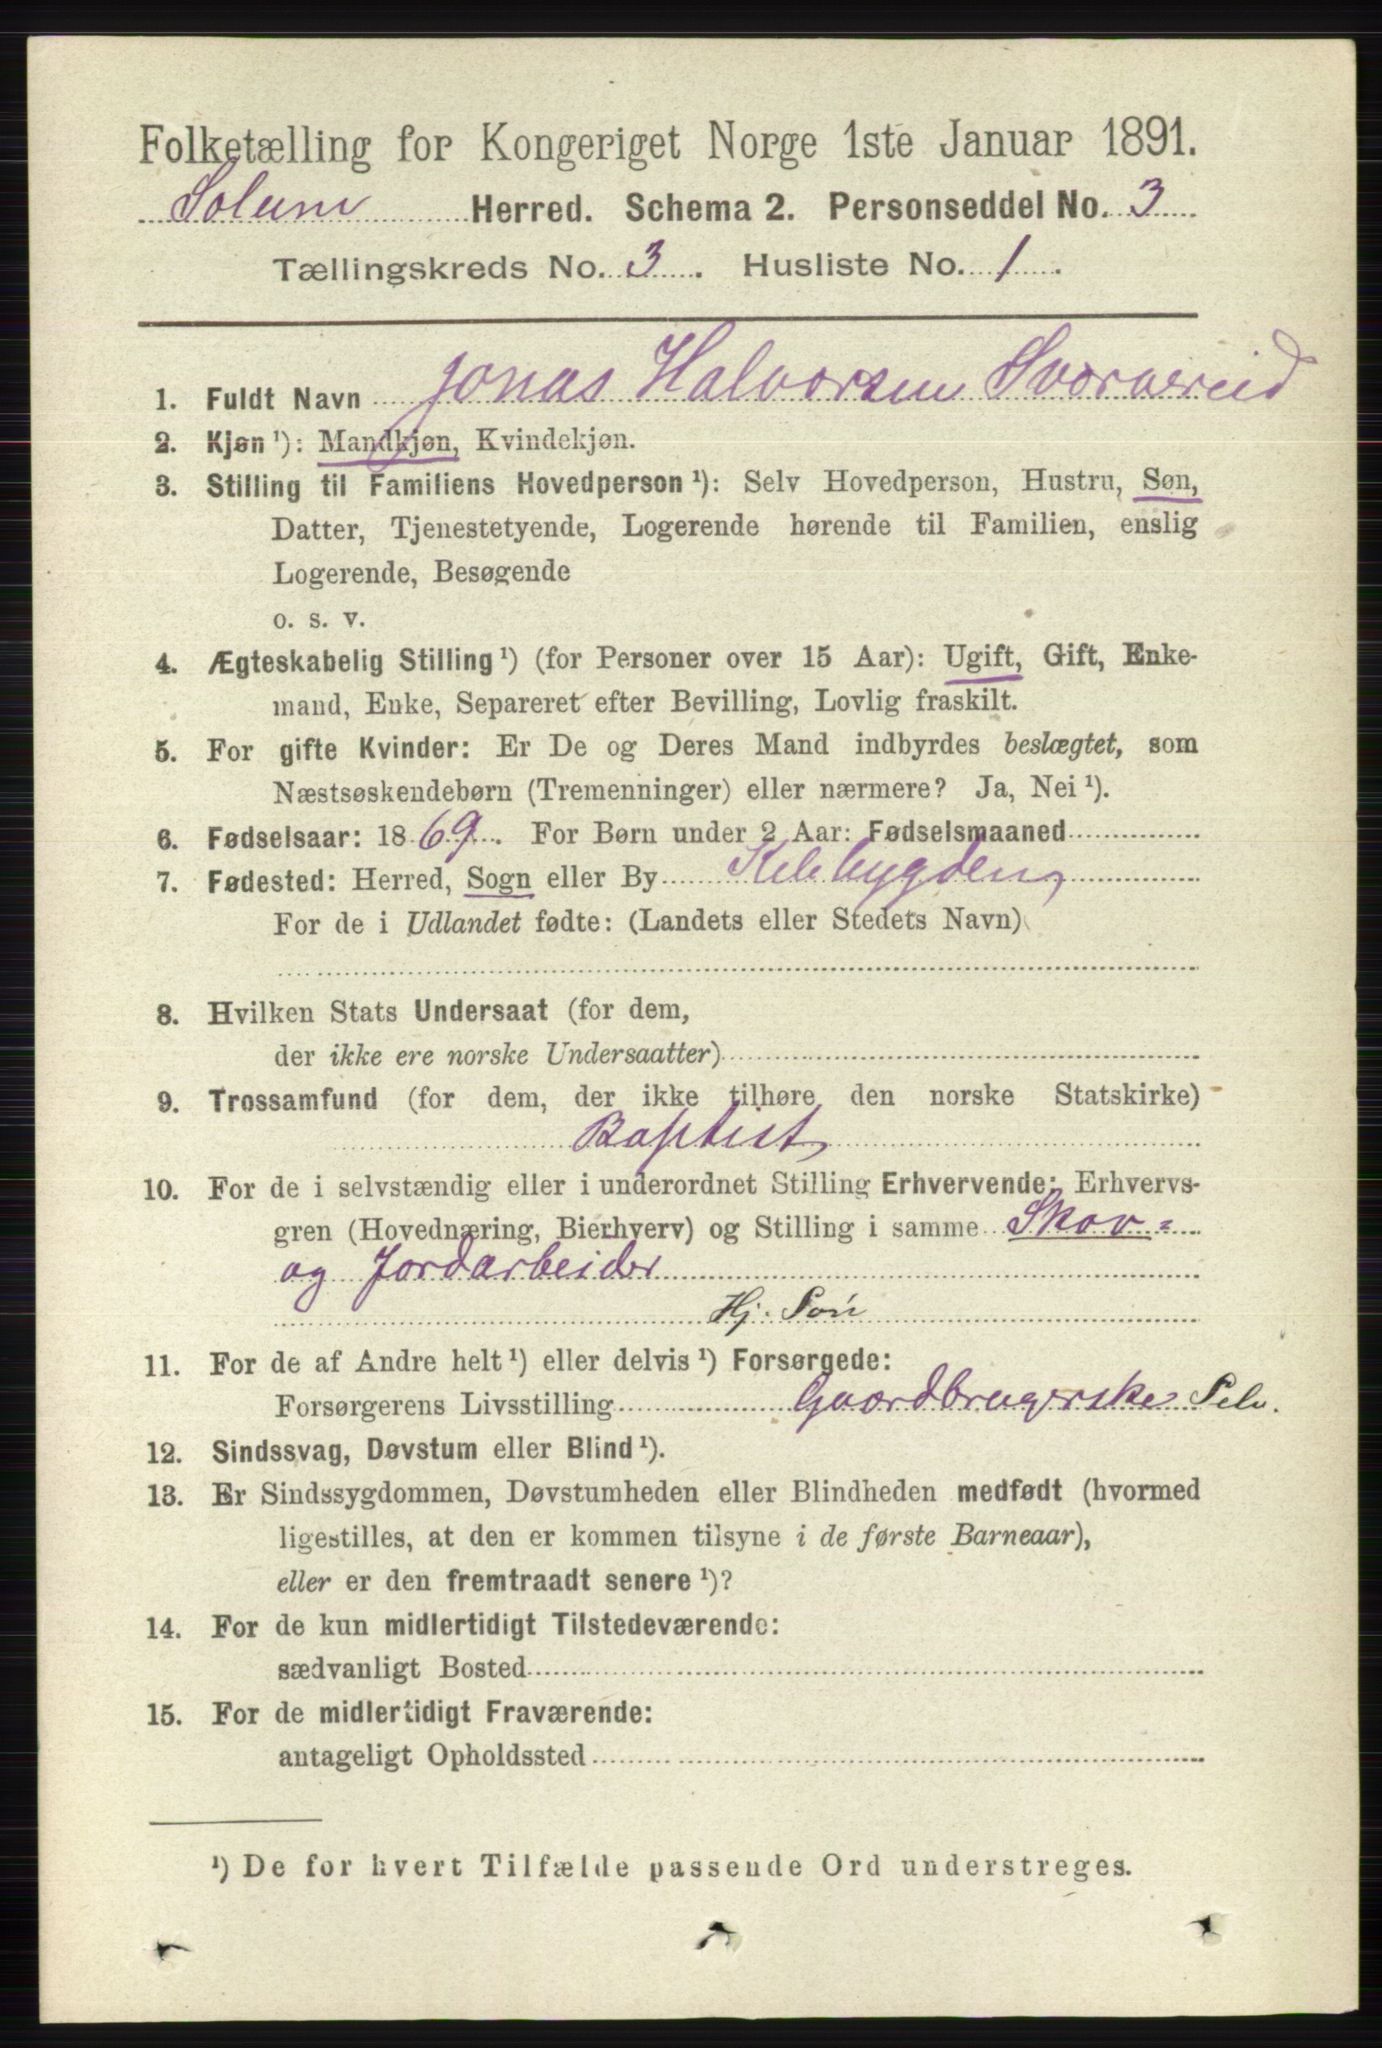 Folketælling for Kongeriget Norge 1ste Januar 1891.
Solum Herred. Schema 2. Personseddel No. 3
Tællingskreds No. 3. Husliste No. 1.
1. Fuldt Navn Jonas Halvorsen Svarvereid
2. Kjøn ¹): Mandkjøn, Kvindekjøn.
3. Stilling til Familiens Hovedperson ¹): Selv Hovedperson, Hustru, Søn,
Datter, Tjenestetyende, Logerende hørende til Familien, enslig
Logerende, Besøgende
o. s. v.
4. Ægteskabelig Stilling ¹) (for Personer over 15 Aar): Ugift, Gift, Enke-
mand, Enke, Separeret efter Bevilling, Lovlig fraskilt.
5. For gifte Kvinder: Er De og Deres Mand indbyrdes beslægtet, som
Næstsøskendebørn (Tremenninger) eller nærmere? Ja, Nei ¹).
6. Fødselsaar: 1869. For Børn under 2 Aar: Fødselsmaaned
7. Fødested: Herred, Sogn eller By Kilebygden
For de i Udlandet fødte: (Landets eller Stedets Navn)
8. Hvilken Stats Undersaat (for dem,
der ikke ere norske Undersaatter)
9. Trossamfund (for dem, der ikke tilhøre den norske Statskirke)
Baptist
10. For de i selvstændig eller i underordnet Stilling Erhvervende: Erhvervs-
gren (Hovednæring, Bierhverv) og Stilling i samme Skov=
og Jordarbeider
Hj. Søn
11. For de af Andre helt ¹) eller delvis ¹) Forsørgede:
Forsørgerens Livsstilling Gaardbrugerske Selv.
12. Sindssvag, Døvstum eller Blind ¹).
13. Er Sindssygdommen, Døvstumheden eller Blindheden medfødt (hvormed
ligestilles, at den er kommen tilsyne i de første Barneaar),
eller er den fremtraadt senere ¹)?
14. For de kun midlertidigt Tilstedeværende:
sædvanligt Bosted
15. For de midlertidigt Fraværende:
antageligt Opholdssted
¹) De for hvert Tilfælde passende Ord understreges.